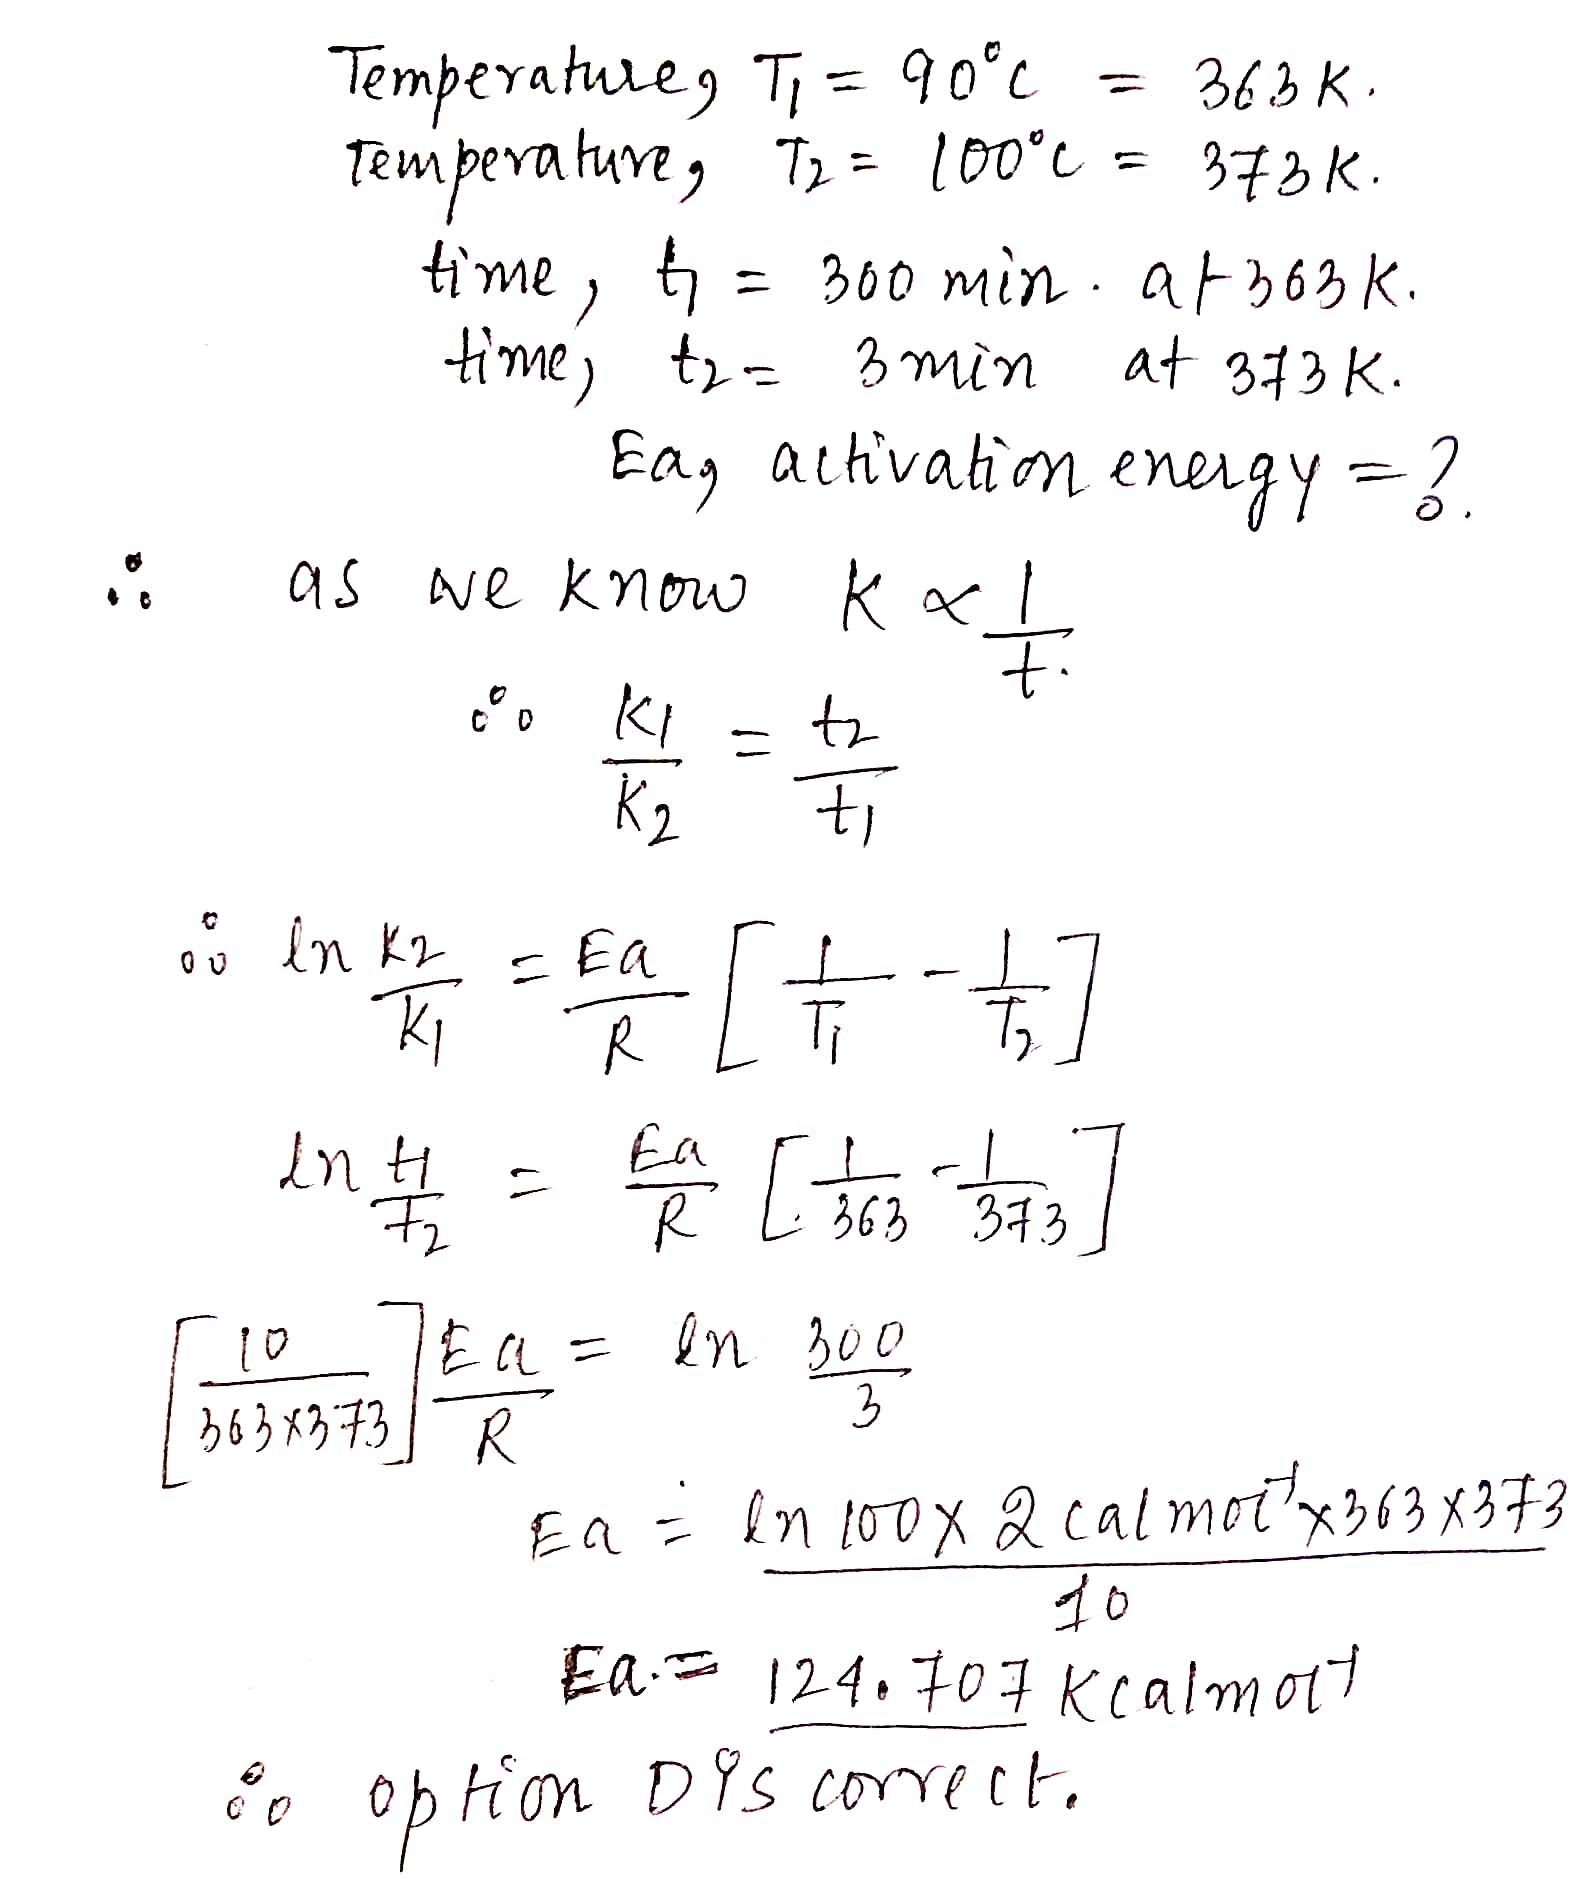 Temperature, T1 = 90°C = 363K.
Temperature, T2 = 100°C = 373K.
time, t1 = 300 min. at 363K.
time, t2 = 3 min at 373K.
Ea, activation energy = ?.
∴ as we know K ∝ 1/t.
∴ K1/K2 = t2/t1
∴ ln K2/K1 = Ea/R [1/T1 - 1/T2]
ln t1/t2 = Ea/R [1/363 - 1/373]
[10/363×373] Ea/R = ln 300/3
Ea = ln 100 × 2 cal mol⁻¹ × 363 × 373/10
Ea. = 124.707 Kcal mol⁻¹
∴ option D is correct.